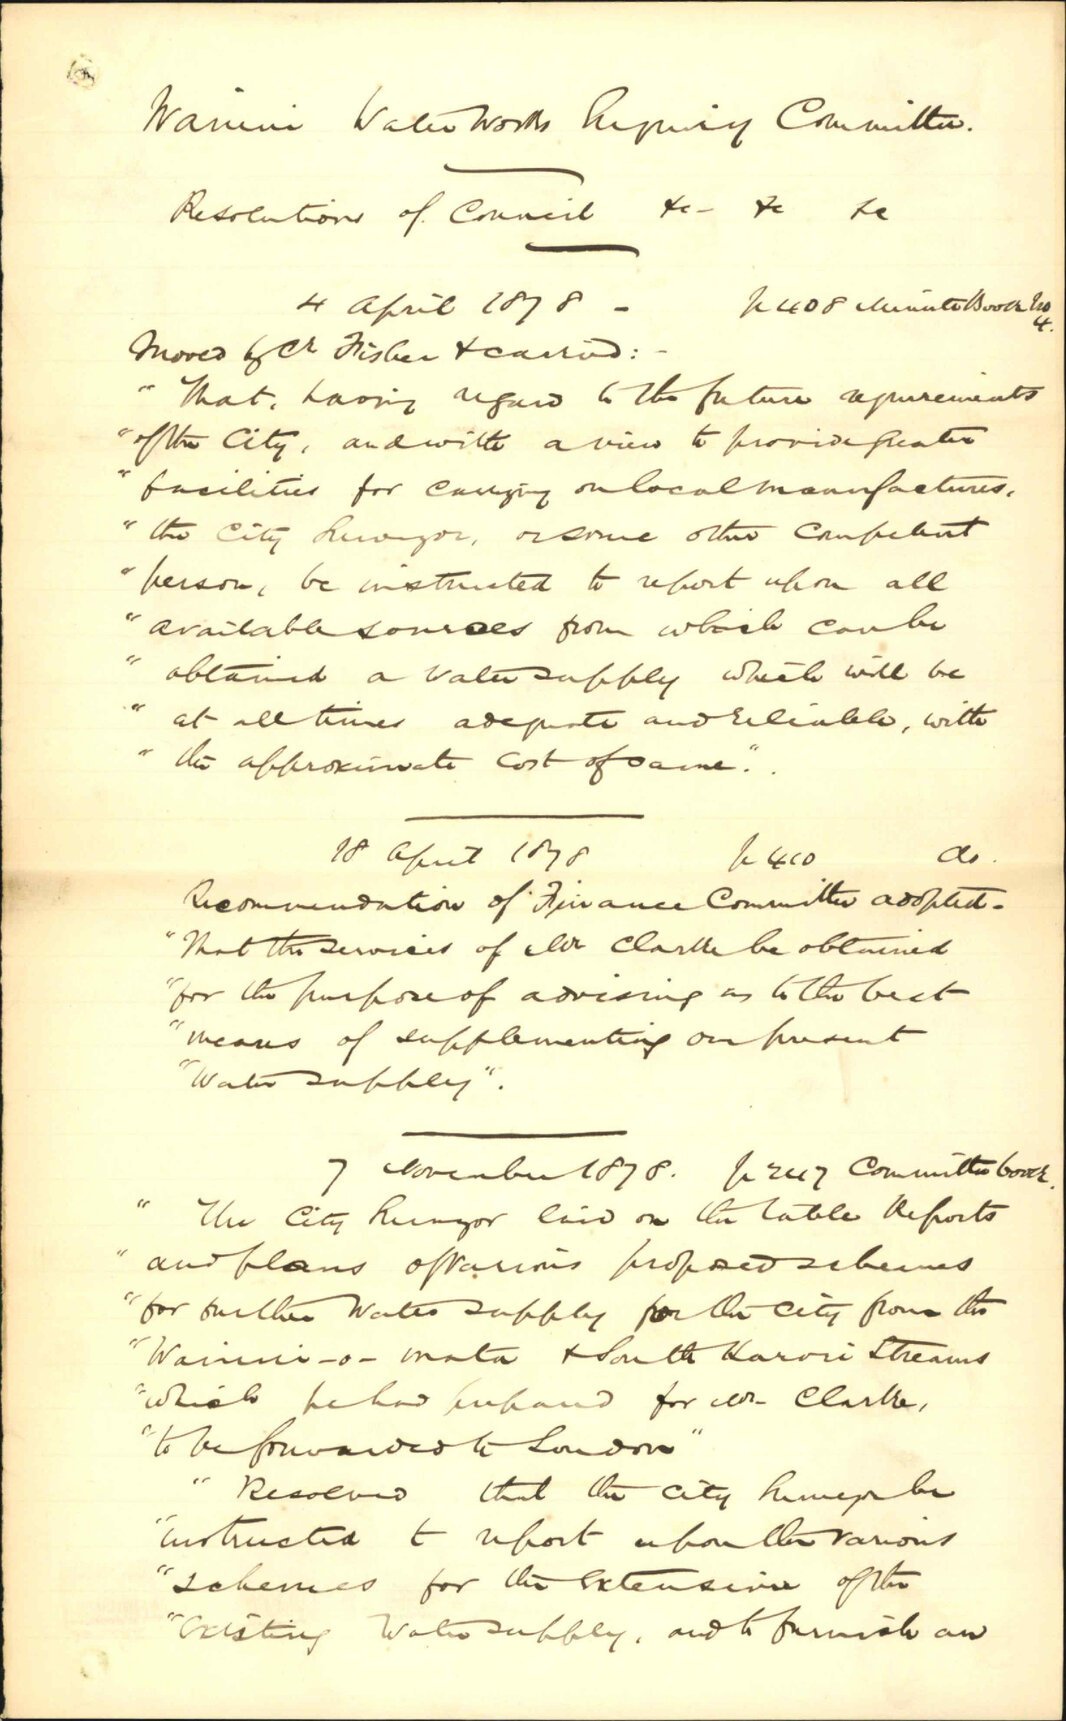 Wainui Water Works Enquiry Committee.
Resolutions of Council &c - &c &c
4 April 1878 - p 408 Minute Book No 4.
Moved by Cr Fisher & carried: -
" That, having regard to the future requirements
" of the City, and with a view to provide greater
" facilities for carrying on local manufactures,
" the City Surveyor, or some other competent
" person, be instructed to report upon all
" available sources from which can be
" obtained a Water supply which will be
" at all times adequate and reliable, with
" the approximate Cost of same".
18 April 1878 p 410 do.
Recommendation of Finance Committee adopted -
" That the services of Mr Clarke be obtained
" for the purpose of advising as to the best
" means of supplementing our present
" Water supply".
7 November 1878. p 247 Committee book.
" The City Surveyor laid on the table Reports
" and plans of various proposed schemes
" for further Water supply for the City from the
" Wainui-o-mata & South Karori Streams
" which he had prepared for Mr Clarke,
" to be forwarded to London"
" Resolved that the City Surveyor be
" instructed to report upon the various
" schemes for the extension of the
" Existing Water supply, and to furnish an